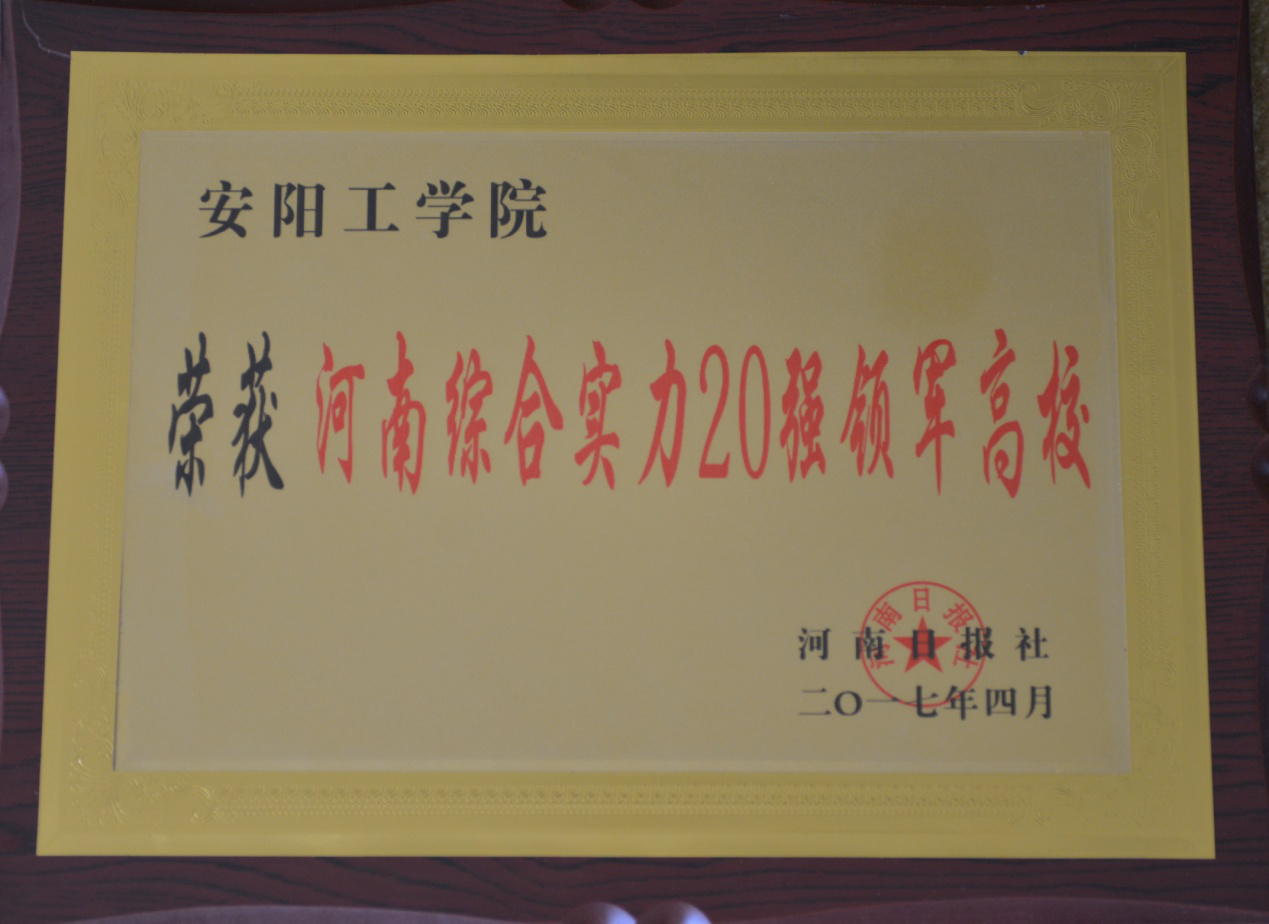 安阳工学院
荣获 河南综合实力20强领军高校
河南日报社
河南日报社
二〇一七年四月